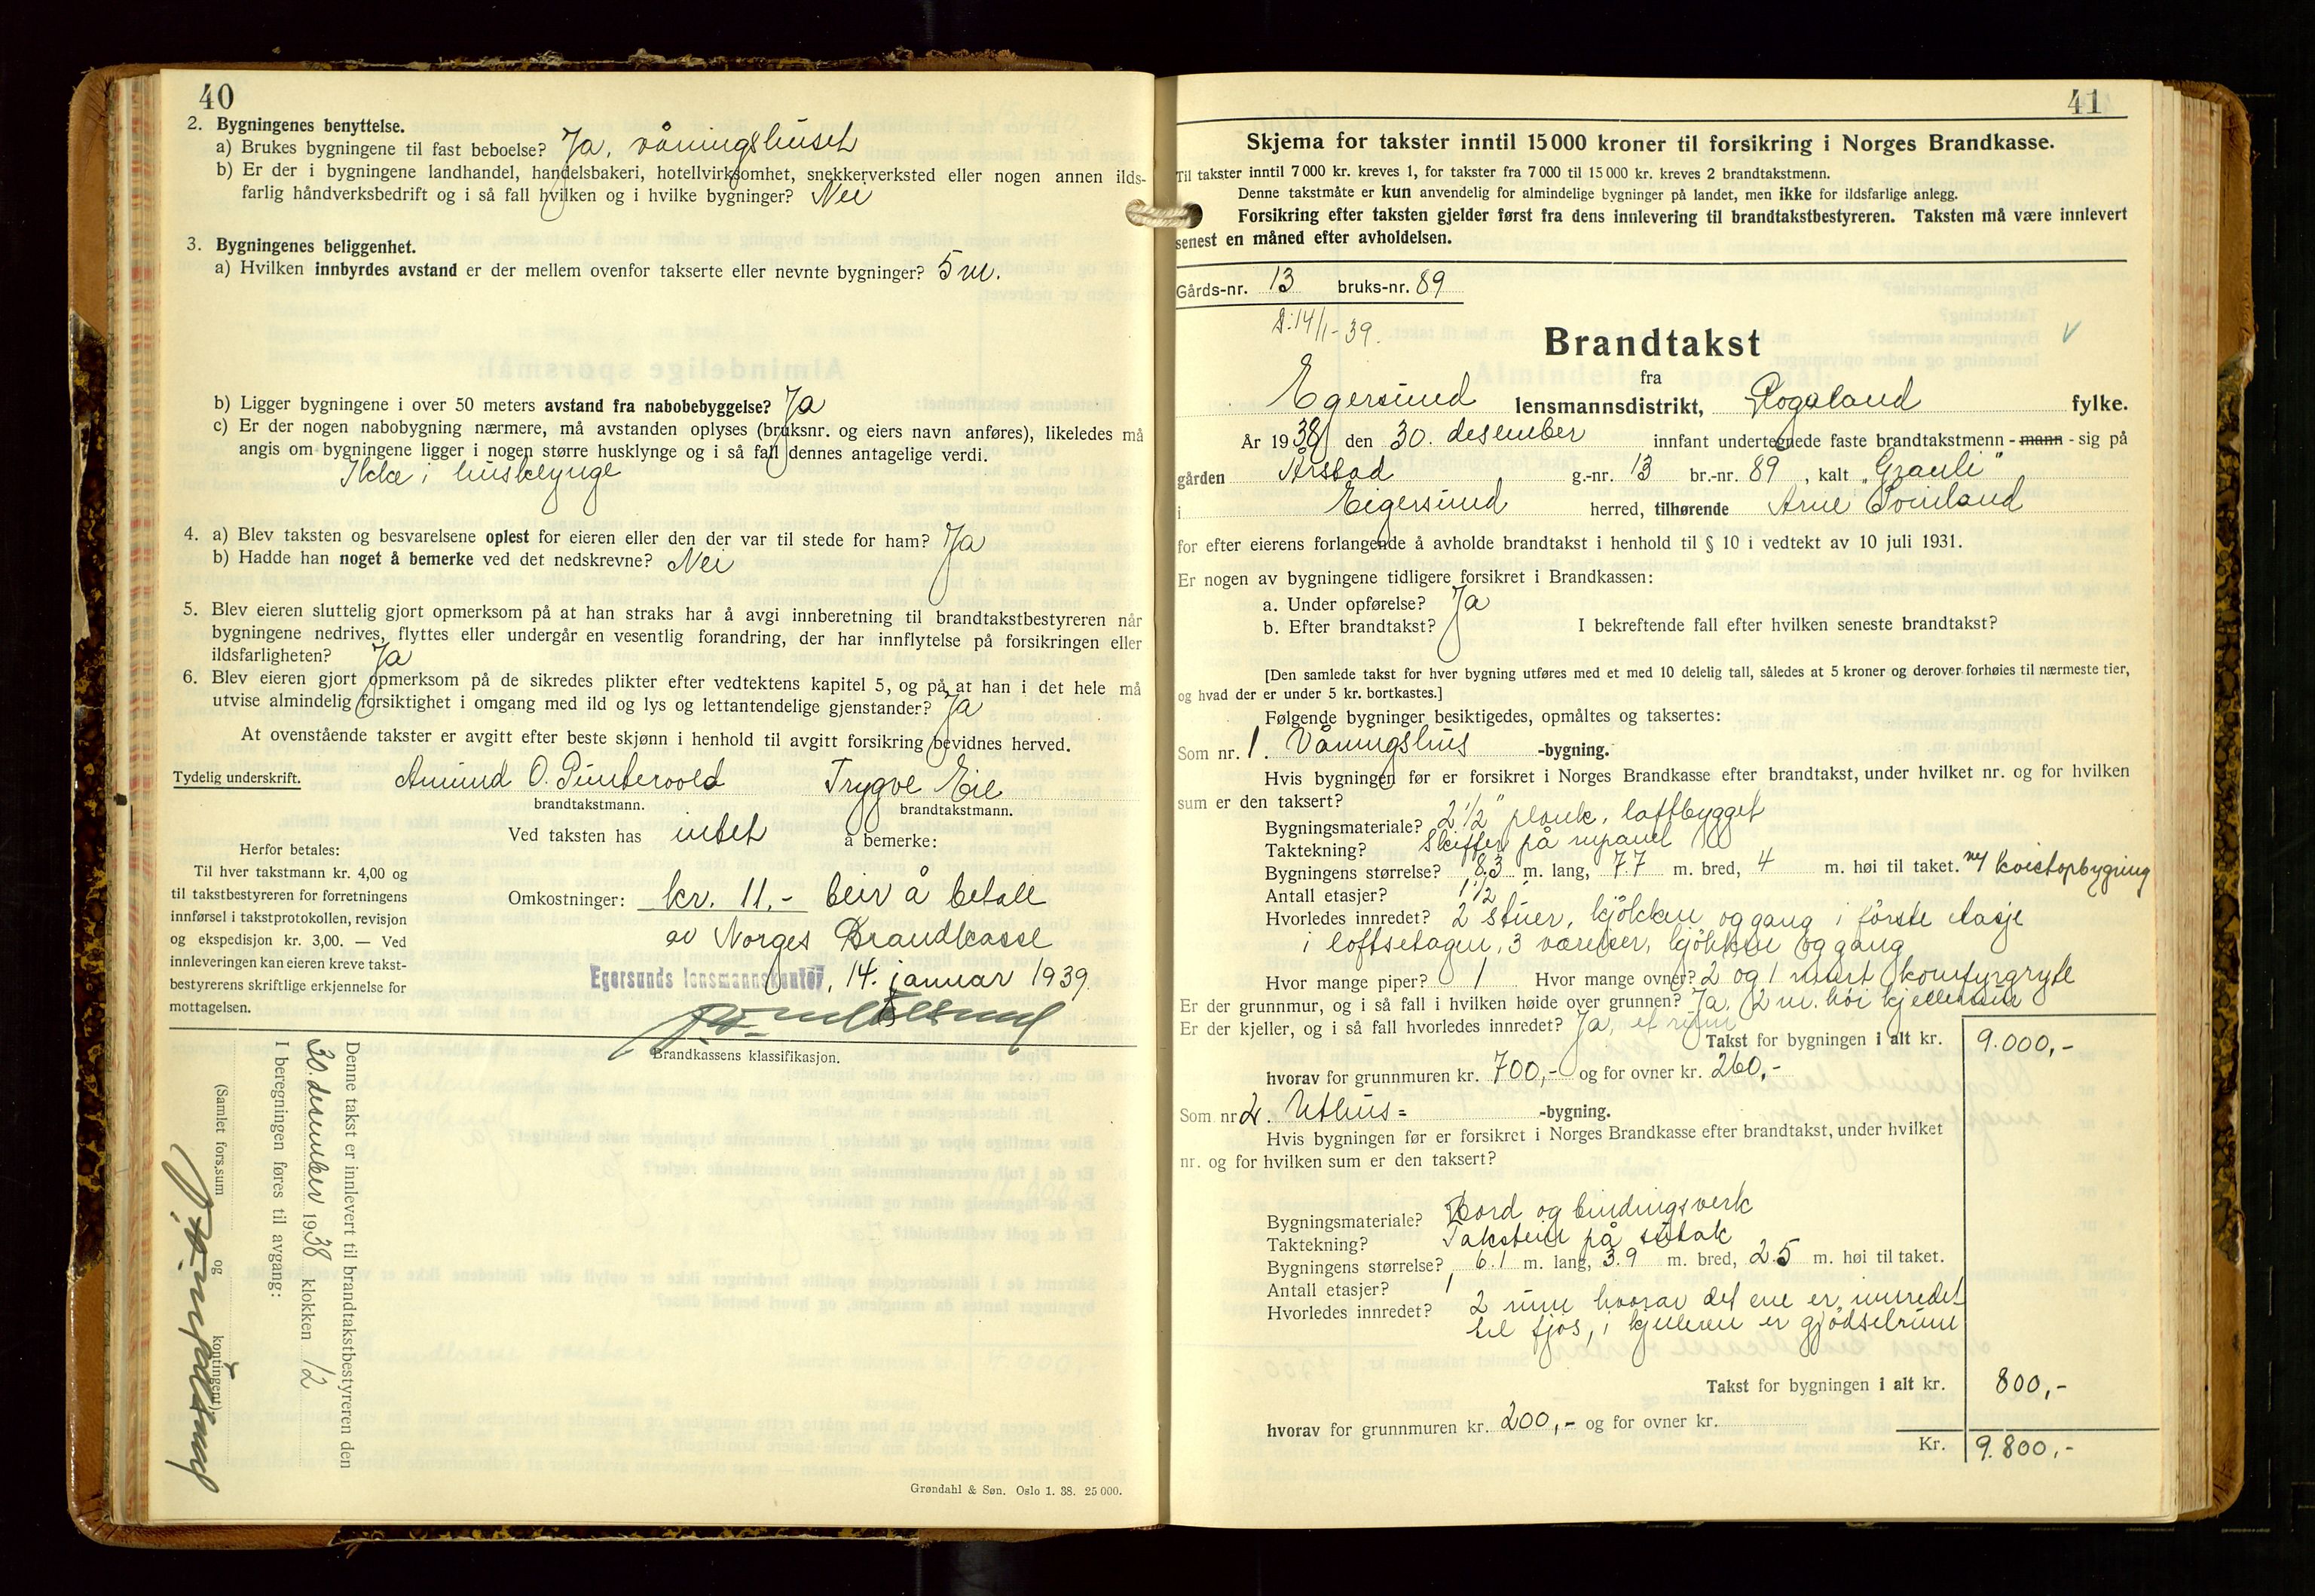 40
2. Bygningenes benyttelse.
a) Brukes bygningene til fast beboelse? Ja, våningshuset
b) Er der i bygningene landhandel, handelsbakeri, hotellvirksomhet, snekkerverksted eller nogen annen ilds-
farlig håndverksbedrift og i så fall hvilken og i hvilke bygninger? Nei
3. Bygningenes beliggenhet.
a) Hvilken innbyrdes avstand er der mellem ovenfor takserte eller nevnte bygninger? 5 m.
b) Ligger bygningene i over 50 meters avstand fra nabobebyggelse? Ja
c) Er der nogen nabobygning nærmere, må avstanden oplyses (bruksnr. og eiers navn anføres), likeledes må
angis om bygningene ligger i nogen større husklynge og i så fall dennes antagelige verdi.
Ikke i husklynge
4. a) Blev taksten og besvarelsene oplest for eieren eller den der var til stede for ham? Ja
b) Hadde han noget å bemerke ved det nedskrevne? Nei
5. Blev eieren sluttelig gjort opmerksom på at han straks har å avgi innberetning til brandtakstbestyreren når
bygningene nedrives, flyttes eller undergår en vesentlig forandring, der har innflytelse på forsikringen eller
ildsfarligheten? Ja
6. Blev eieren gjort opmerksom på de sikredes plikter efter vedtektens kapitel 5, og på at han i det hele må
utvise almindelig forsiktighet i omgang med ild og lys og lettantendelige gjenstander? Ja
At ovenstående takster er avgitt efter beste skjønn i henhold til avgitt forsikring bevidnes herved.
Tydelig underskrift. Amund O. Puntervold Trygve Eie
brandtakstmann. brandtakstmann.
Ved taksten has intet å bemerke:
Herfor betales:
Til hver takstmann kr. 4,00 og
til takstbestyreren for forretningens
innførsel i takstprotokollen, revisjon
og ekspedisjon kr. 3,00. — Ved
innleveringen kan eieren kreve takst-
bestyrerens skriftlige erkjennelse for
mottagelsen.
Omkostninger: kr. 11.- beir å betale
av Norges Brandkasse
Egersunds lensmannskontor, 14. januar 1939.
Brandkassens klassifikasjon.
Denne takst er innlevert til brandtakstbestyreren den
30. desember 1938 klokken 12
I beregningen føres til avgang:
(Samlet fors.sum og kontingent)
Grøndahl & Søn. Oslo 1. 38. 25 000.
41
Skjema for takster inntil 15 000 kroner til forsikring i Norges Brandkasse.
Til takster inntil 7 000 kr. kreves 1, for takster fra 7 000 til 15 000 kr. kreves 2 brandtakstmenn.
Denne takstmåte er kun anvendelig for almindelige bygninger på landet, men ikke for ildsfarlige anlegg.
Forsikring efter taksten gjelder først fra dens innlevering til brandtakstbestyreren. Taksten må være innlevert
senest en måned efter avholdelsen.
Gårds-nr. 13 bruks-nr. 89
D: 14/1-39.
Brandtakst
fra
Egersund lensmannsdistrikt, Rogaland fylke.
År 1938 den 30. desember innfant undertegnede faste brandtakstmenn - mann - sig på
gården Årstad g.-nr. 13 br.-nr. 89, kalt "Grauli"
i Eigersund herred, tilhørende Arne Tomland
for efter eierens forlangende å avholde brandtakst i henhold til § 10 i vedtekt av 10 juli 1931.
Er nogen av bygningene tidligere forsikret i Brandkassen:
a. Under opførelse? Ja
b. Efter brandtakst? I bekreftende fall efter hvilken seneste brandtakst?
[Den samlede takst for hver bygning utføres med et med 10 delelig tall, således at 5 kroner og derover forhøies til nærmeste tier,
og hvad der er under 5 kr. bortkastes.]
Følgende bygninger besiktigedes, opmåltes og taksertes:
Som nr. 1. Våningshus -bygning.
Hvis bygningen før er forsikret i Norges Brandkasse efter brandtakst, under hvilket nr. og for hvilken
sum er den taksert?
Bygningsmateriale? 2 1/2" plank, loftbygget
Taktekning? Skiffer på rupanel
Bygningens størrelse? 8,3 m. lang, 7.7 m. bred, 4 m. høi til taket. m/ kvistopbygning
Antall etasjer? 1 1/2
Hvorledes innredet? 2 stuer, kjökken og gang i förste etasje
i loftsetagen, 3 værelser, kjökken og gang
Hvor mange piper? 1 Hvor mange ovner? 2 og 1 murt komfyrgryte
Er der grunnmur, og i så fall i hvilken høide over grunnen? Ja. 2 m. höi kjellermur
Er der kjeller, og i så fall hvorledes innredet? Ja, et rum
Takst for bygningen i alt kr. 9.000,-
hvorav for grunnmuren kr. 700,- og for ovner kr. 260,-
Som nr 2. Uthus= -bygning.
Hvis bygningen før er forsikret i Norges Brandkasse efter brandtakst, under hvilket
nr. og for hvilken sum er den taksert?
Bygningsmateriale? Bord og bindingsverk
Taktekning? Takstein på sutak
Bygningens størrelse? 6.1 m. lang, 3.9 m. bred, 2.5 m. høi til taket.
Antall etasjer? 1
Hvorledes innredet? 2 rum hvorav det ene er innredet
til fjös, i kjelleren er gjödselrum
Takst for bygningen i alt kr. 800,-
hvorav for grunnmuren kr. 200,- og for ovner kr.
Kr. 9.800,-